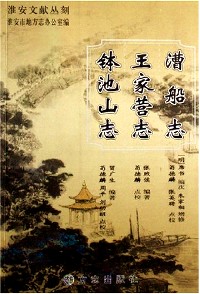 淮安文献丛刻
淮安市地方志办公室编
漕船志
王家营志
钵池山志
[明]席书 编次 朱家相 增修
荀德麟 张英聘 点校
张煦侯 编著
荀德麟 点校
冒广生 编著
荀德麟 周平 刘功昭 点校
方志出版社